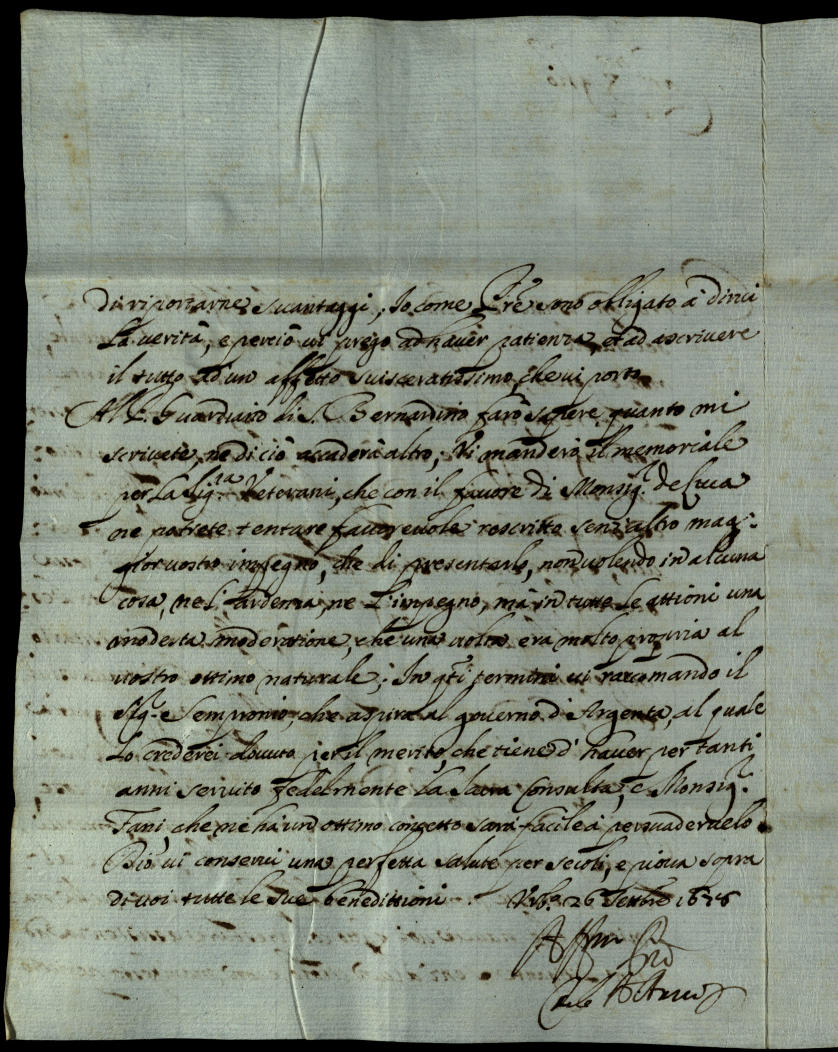 di riportarne svantaggi, Io come Pre sono obligato à dirvi
la verità, e perciò vi prego ad haver patienza, et ad ascrivere
il tutto ad un affetto svisceratissimo che vi porto
Al P. Guardiano di S. Bernardino farò sapere quanto mi
scrivete, ne di ciò accaderà altro, Vi manderò il memoriale
per la Sig.ra Veterani, che con il favore di Monsig.r de Luca
ne potrete tentare favorevole rescritto senz'altro mag-
gior vostro impegno, che di presentarlo, non volendo in alcuna
cosa, ne l'ardenza, ne l'impegno, mà in tutte le attioni una
modesta moderatione, che una volta era molto propria al
vostro ottimo naturale; In q.ti termini vi raccomando il
Sig.e Sempronio, che aspira al governo d'Argenta, al quale
lo crederei dovuto per il merito, che tiene d'haver per tanti
anni servito fedelmente la Sacra Consulta, e Monsig.r
Fani che ne hà un ottimo concetto sarà facile à persuadervelo
Dio vi conservi una perfetta salute per secoli, e piova sopra
di voi tutte le sue benedittioni. Urb.o 26 Settbre
Affmo